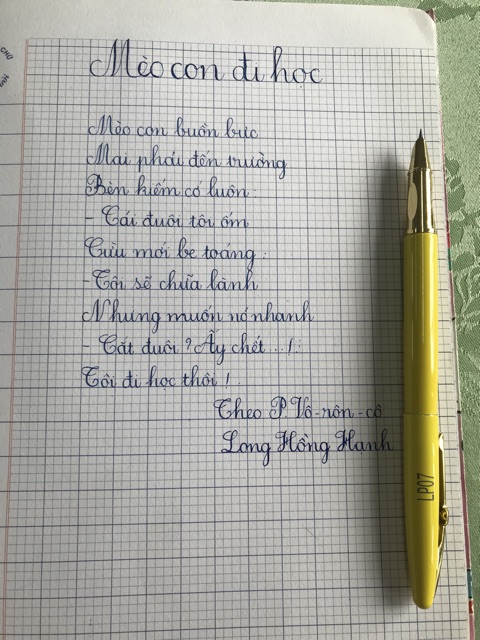 Mèo con đi học
Mèo con buồn bực
Mai phải đến trường
Bèn kiếm cớ luôn:
- Cái đuôi tôi ốm
Cừu mới be toáng:
- Tôi sẽ chữa lành
Nhưng muốn nó nhanh
- Cắt đuôi? Ấy chết...!:
Tôi đi học thôi!
Theo P. Vô-rôn-cô
Long Hồng Hanh
LP07